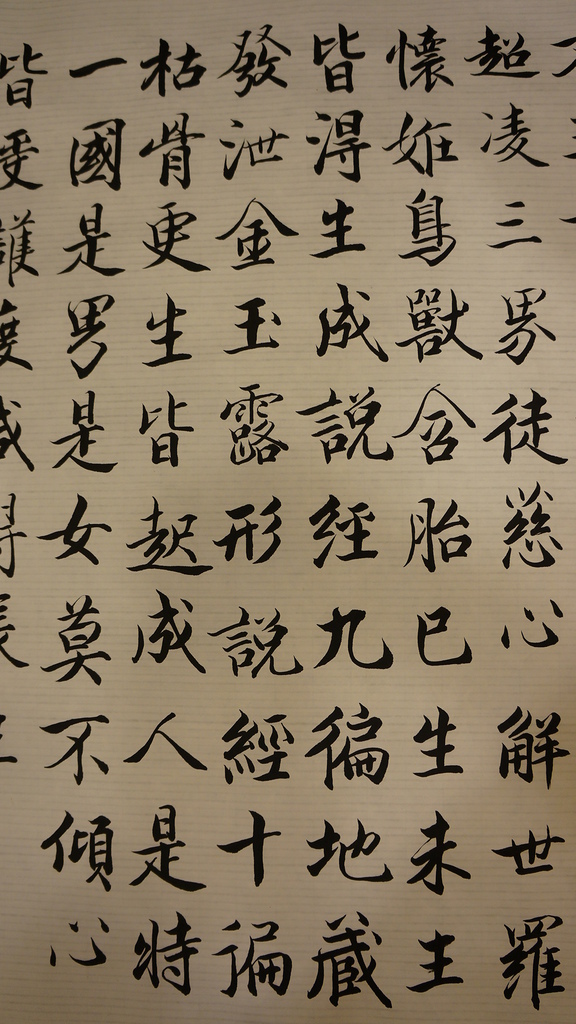 超凌三界徒慈心解世羅
懷妊鳥獸含胎已生未主
皆得生成説經九徧地藏
發泄金玉露形説經十徧
枯骨更生皆起成人是特
一國是男是女莫不傾心
皆受護度咸得長生